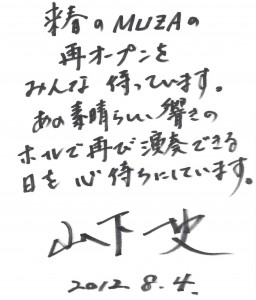 来春のMUZAの
再オープンを
みんな 待っています。
あの素晴らしい響きの
ホールで再び演奏できる
日を 心待ちにしています。
山下
2012 8.4.